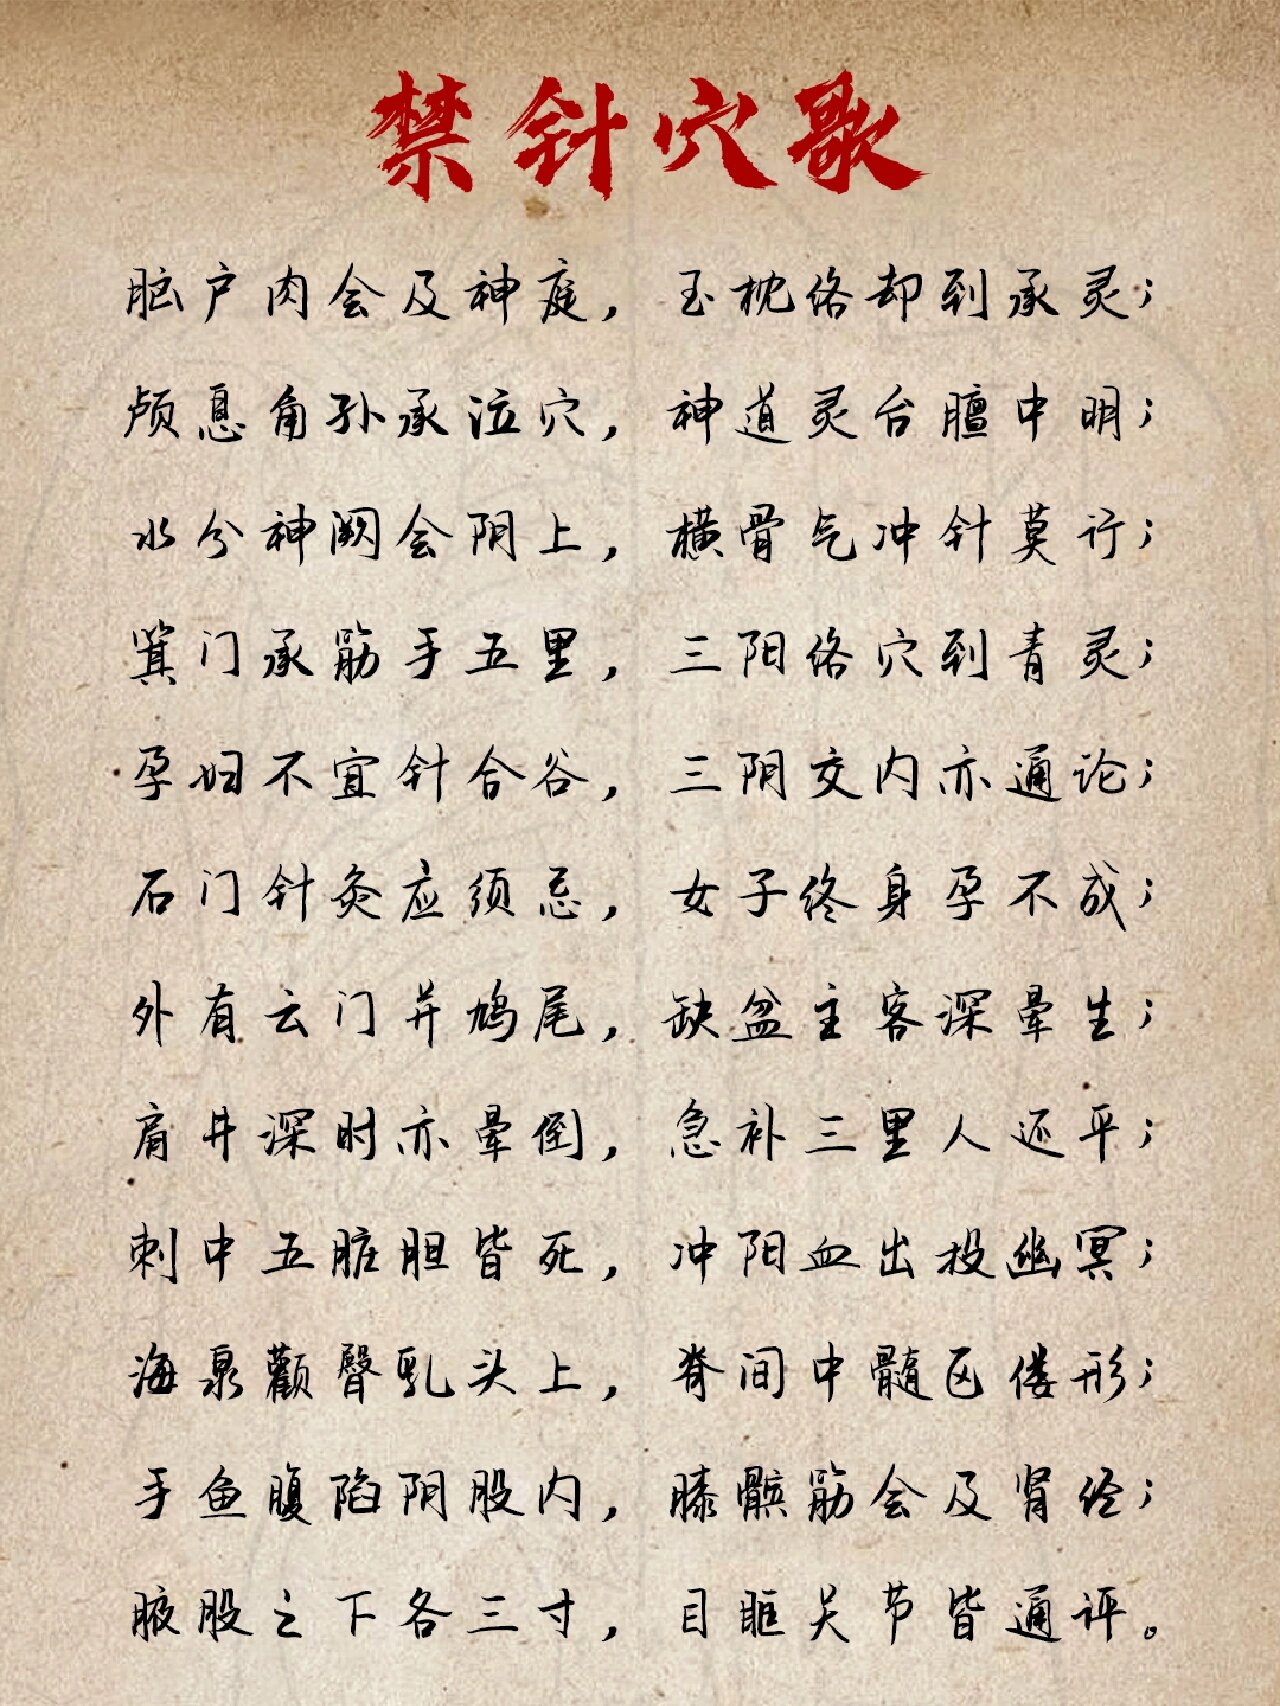 禁针穴歌
脑户肉会及神庭，玉枕络却到承灵；
颅息角孙承泣穴，神道灵台膻中明；
水分神阙会阴上，横骨气冲针莫行；
箕门承筋手五里，三阳络穴到青灵；
孕妇不宜针合谷，三阴交内亦通论；
石门针灸应须忌，女子终身孕不成；
外有云门并鸠尾，缺盆主客深晕生；
肩井深时亦晕倒，急补三里人还平；
刺中五脏胆皆死，冲阳血出投幽冥；
海泉颧臀乳头上，脊间中髓伛偻形；
手鱼腹陷阴股内，膝髌筋会及肾经；
腋股之下各三寸，目眶关节皆通评。